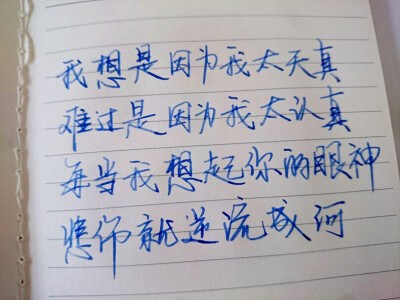 我想是因为我太天真
难过是因为我太认真
每当我想起你的眼神
悲伤就逆流成河